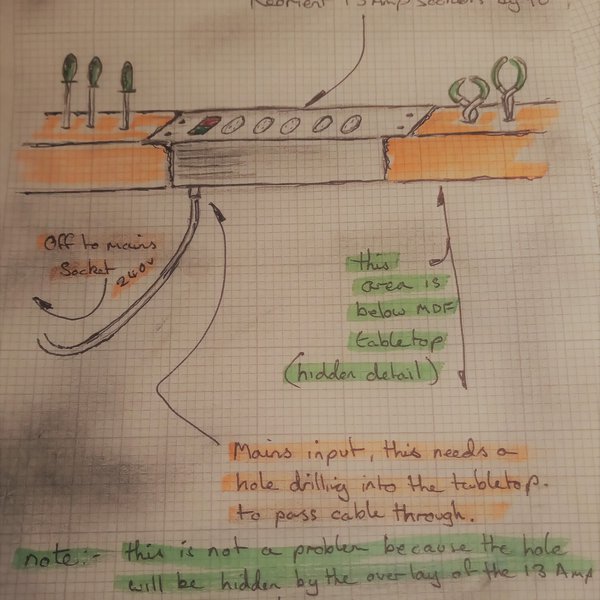 Reorient 13 Amp sockets by 90°,
Off to mains
Socket
240v
this
area is
below MDF
tabletop
(hidden detail)
Mains input, this needs a
hole drilling into the tabletop.
to pass cable through.
note:- this is not a problem because the hole
will be hidden by the overlay of the 13 Amp